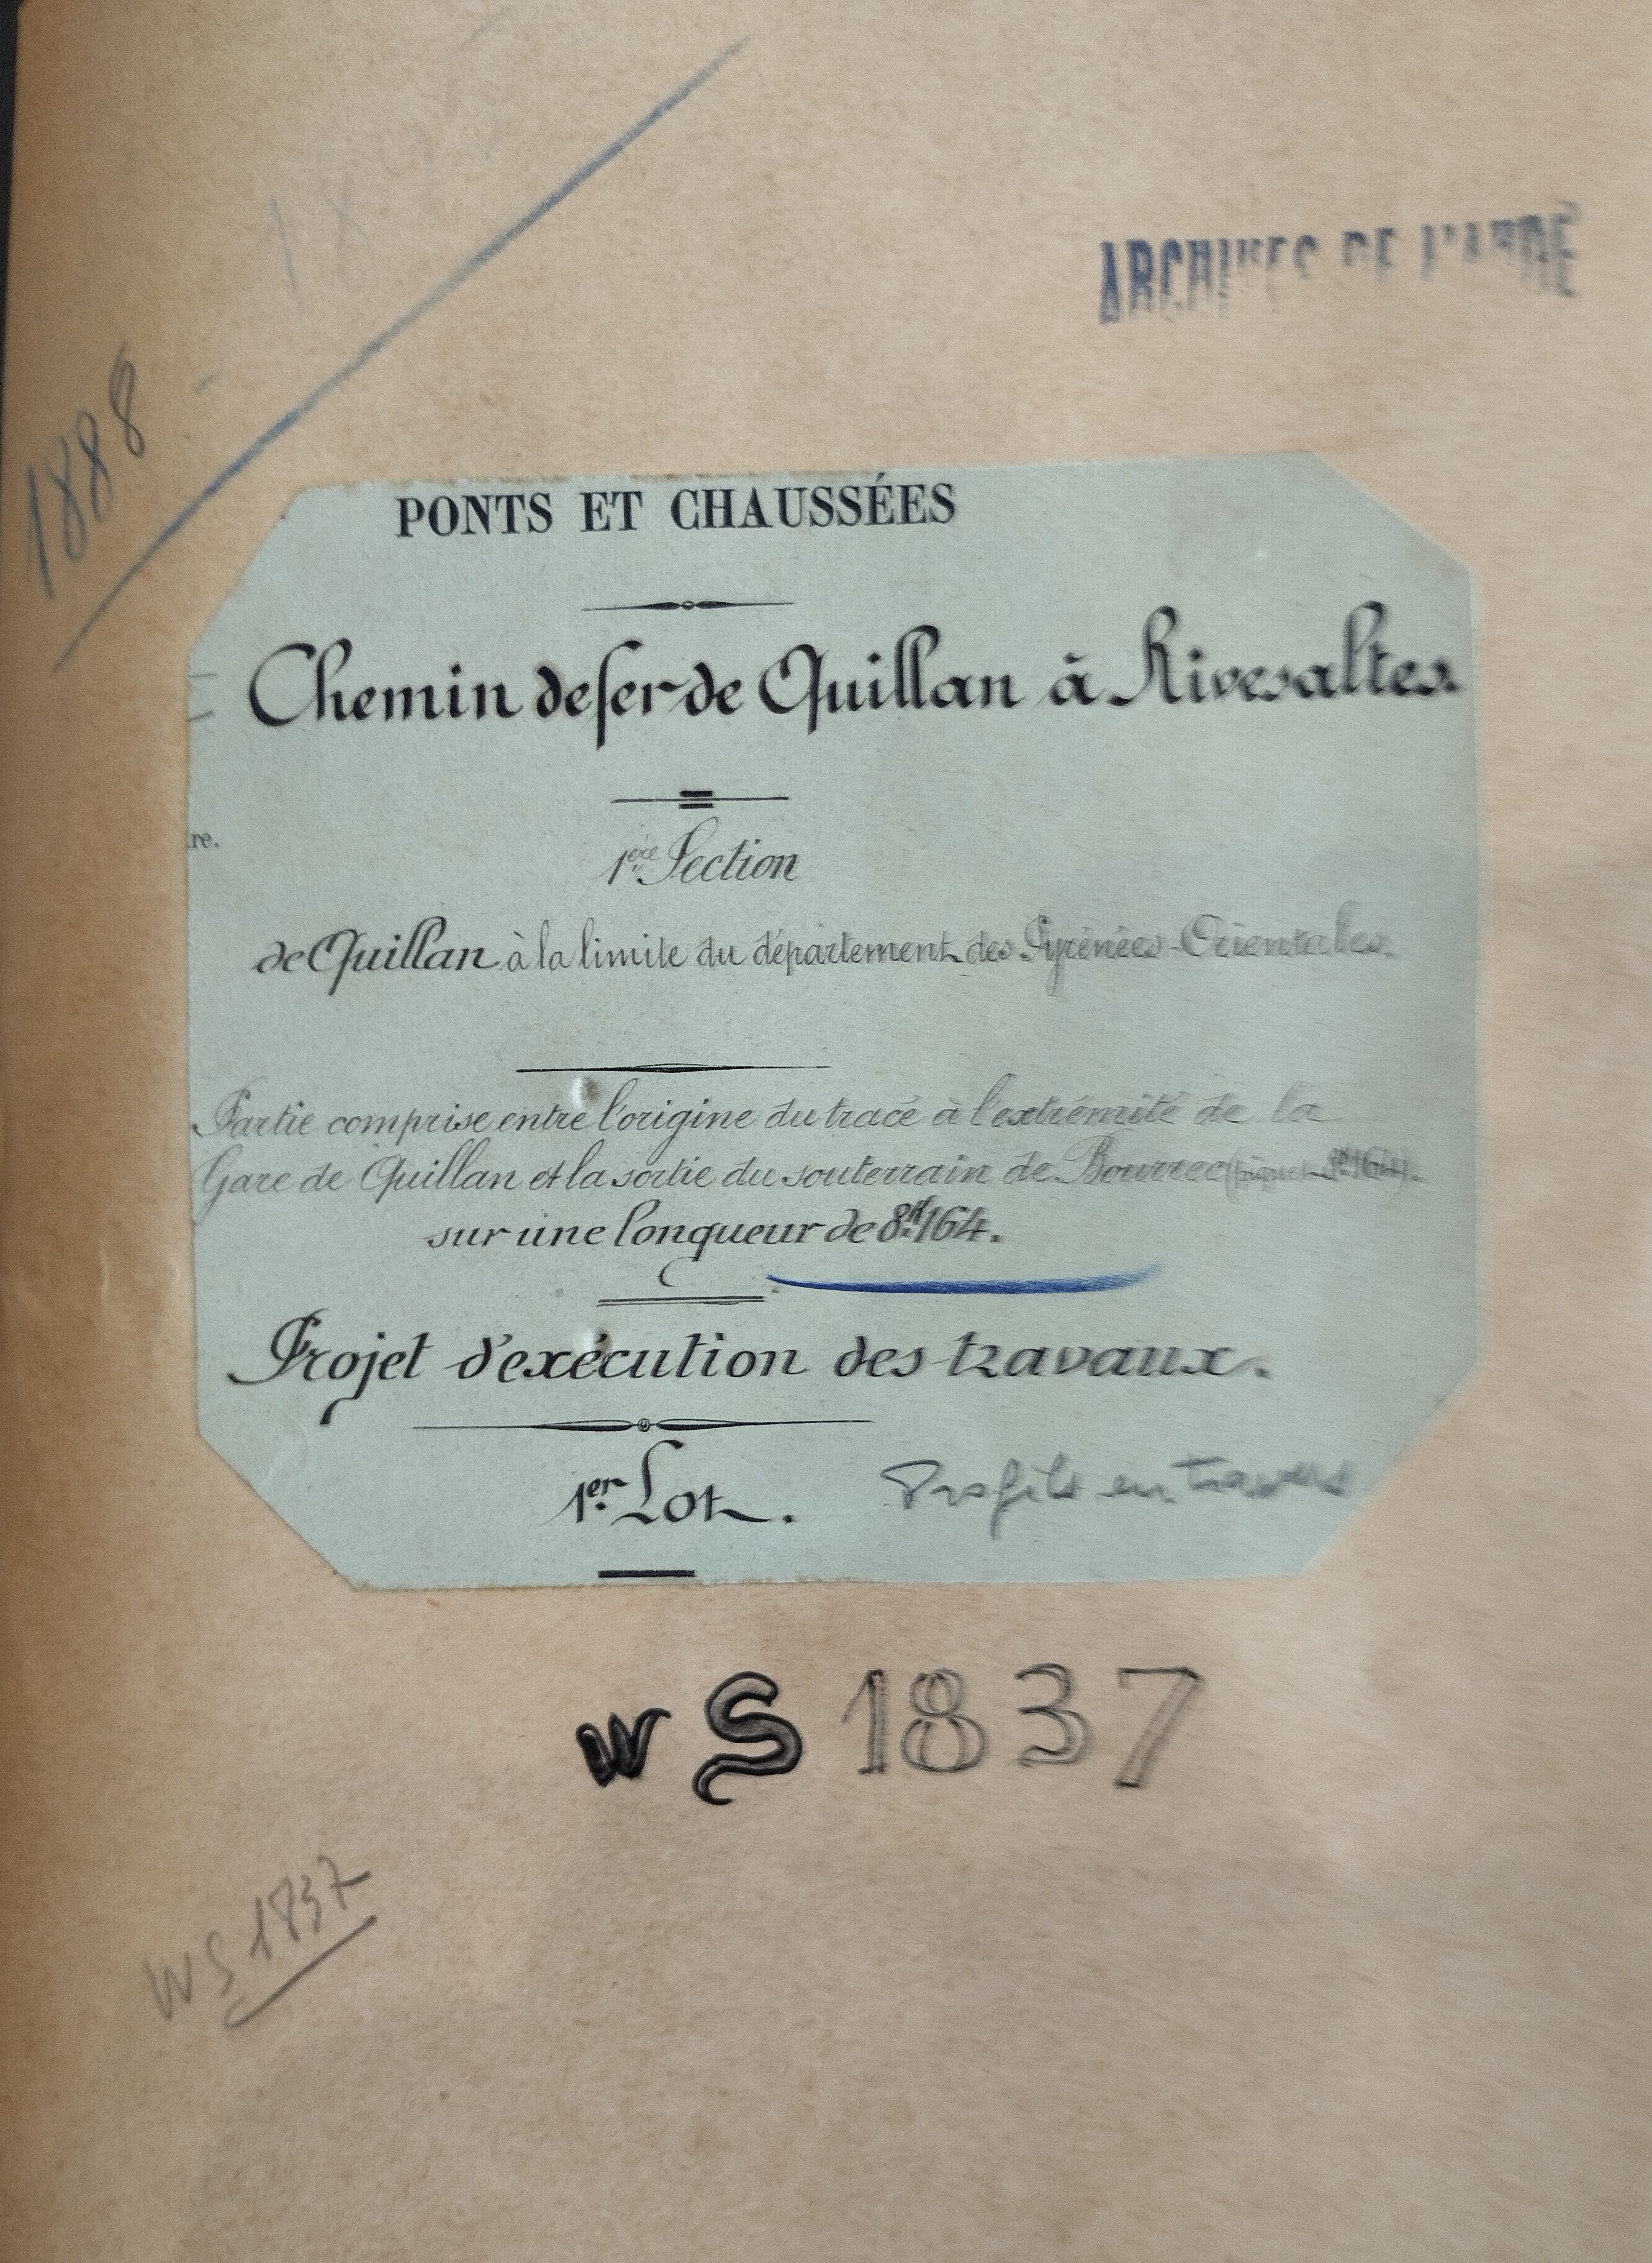 ARCHIVES DE L'AUDE
1888 -
PONTS ET CHAUSSÉES
Chemin de fer de Quillan à Rivesaltes.
re.
1ère Section
de Quillan à la limite du département des Pyrénées-Orientales.
Partie comprise entre l'origine du tracé à l'extrémité de la
Gare de Quillan et la sortie du souterrain de (piquet 8K164).
sur une longueur de 8K164.
Projet d'exécution des travaux.
1er Lot. Profils en travers
WS 1837
WS 1837